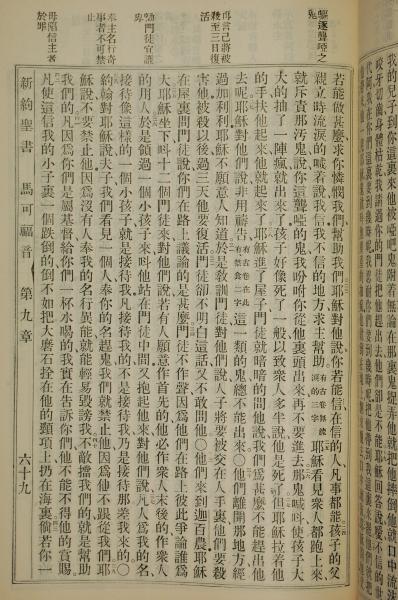 我的兒子到你這裏來他被啞吧鬼附著無論在那裏鬼捉弄他就把他摔倒他就口中流沫
驅逐聾啞之鬼
若能做甚麼求你憐憫我們幫助我們耶穌對他說你若能信在信的人凡事都能孩子的父
親立時流淚的喊著說我信我不信的地方求主幫助有古卷無流淚的三字耶穌看見衆人都跑上來
就斥責那污鬼說你這聾啞的鬼我吩咐你從他裏頭出來再不要進去那鬼喊叫使孩子大
大的抽了一陣瘋就出來了孩子好像死了一般以致衆人多半說他是死了但耶穌拉著他
的手扶他起來他就起來了耶穌進了屋子門徒就暗暗的問他說我們爲甚麼不能趕出他
去呢耶穌對他們說非用禱告有古卷在此有禁食二字這一類的鬼總不能出來○他們離開那地方經
再言己將被殺至三日復活
過加利利耶穌不願意人知道於是敎訓門徒對他們說人子將要被交在人手裏他們要殺
害他被殺以後過三天他要復活門徒卻不明白這話又不敢問他○他們來到迦百農耶穌
在屋裏問門徒說你們在路上議論的是甚麼門徒不作聲因爲他們在路上彼此爭論誰爲
大耶穌坐下叫十二個門徒來對他們說若有人願意作首先的他必作衆人末後的作衆人
勸門徒宜謙卑
的用人於是領過一個小孩子來叫他站在門徒中間又抱起他來對他們說凡人爲我的名
接待像這樣的一個小孩子就是接待我凡接待我的不是接待我乃是接待那差我來的○
奉主名行奇事者不可禁止
約翰對耶穌說夫子我們看見一個人奉你的名趕鬼我們就禁止他因爲他不跟從我們耶
穌說不要禁止他因爲沒有人奉我的名行異能就能輕易毀謗我不敵擋我們的就是幫助
我們的凡因爲你們是屬基督給你們一杯水喝的我實在告訴你們他不能不得他的賞賜
毋陷信主者於罪
凡使這信我的小子裏一個跌倒的倒不如把大磨石拴在他的頸項上扔在海裏倘若你一
新約聖書 馬可福音 第九章 六十九